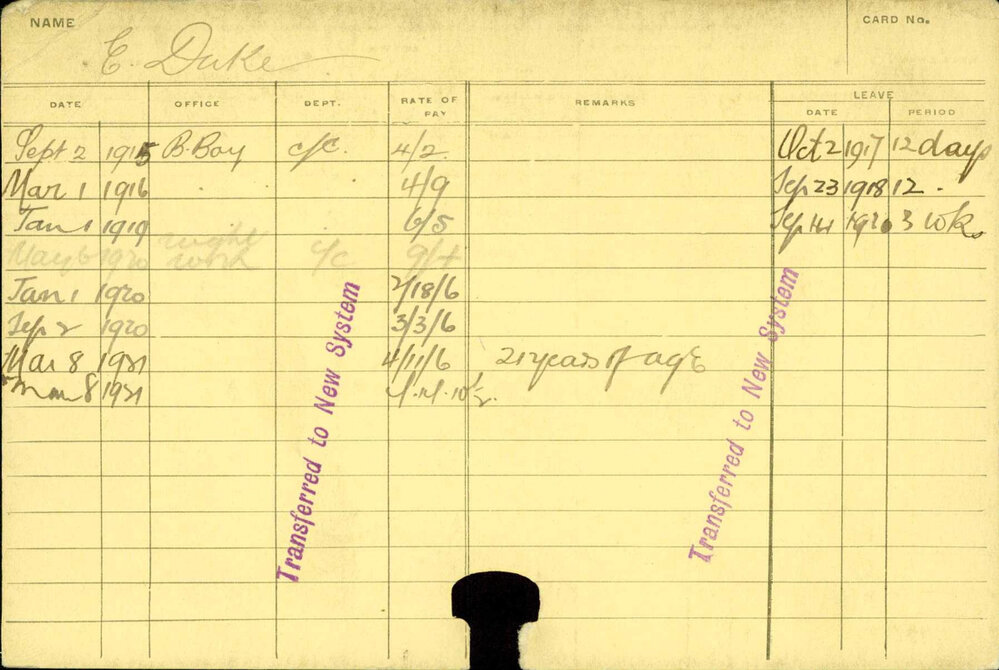 NAME
CARD No.
E. Duke
DATE OFFICE DEPT. RATE OF PAY REMARKS LEAVE
DATE PERIOD
Sept 2 1915 B.Boy c/c. 4/2. Oct 2 1917 12 days
Mar 1 1916 4/9 Sep 23 1918 12 .
Jan 1 1919 6/5 Sep 14 1920 3 wks
May 6 1920 night work c/c 9/4
Jan 1 1920 2/18/6
Sep 2 1920 3/3/6
Mar 8 1921 4/11/6 21 years of age
Mar 8 1921 4.14.10½.
Transferred to New System
Transferred to New System